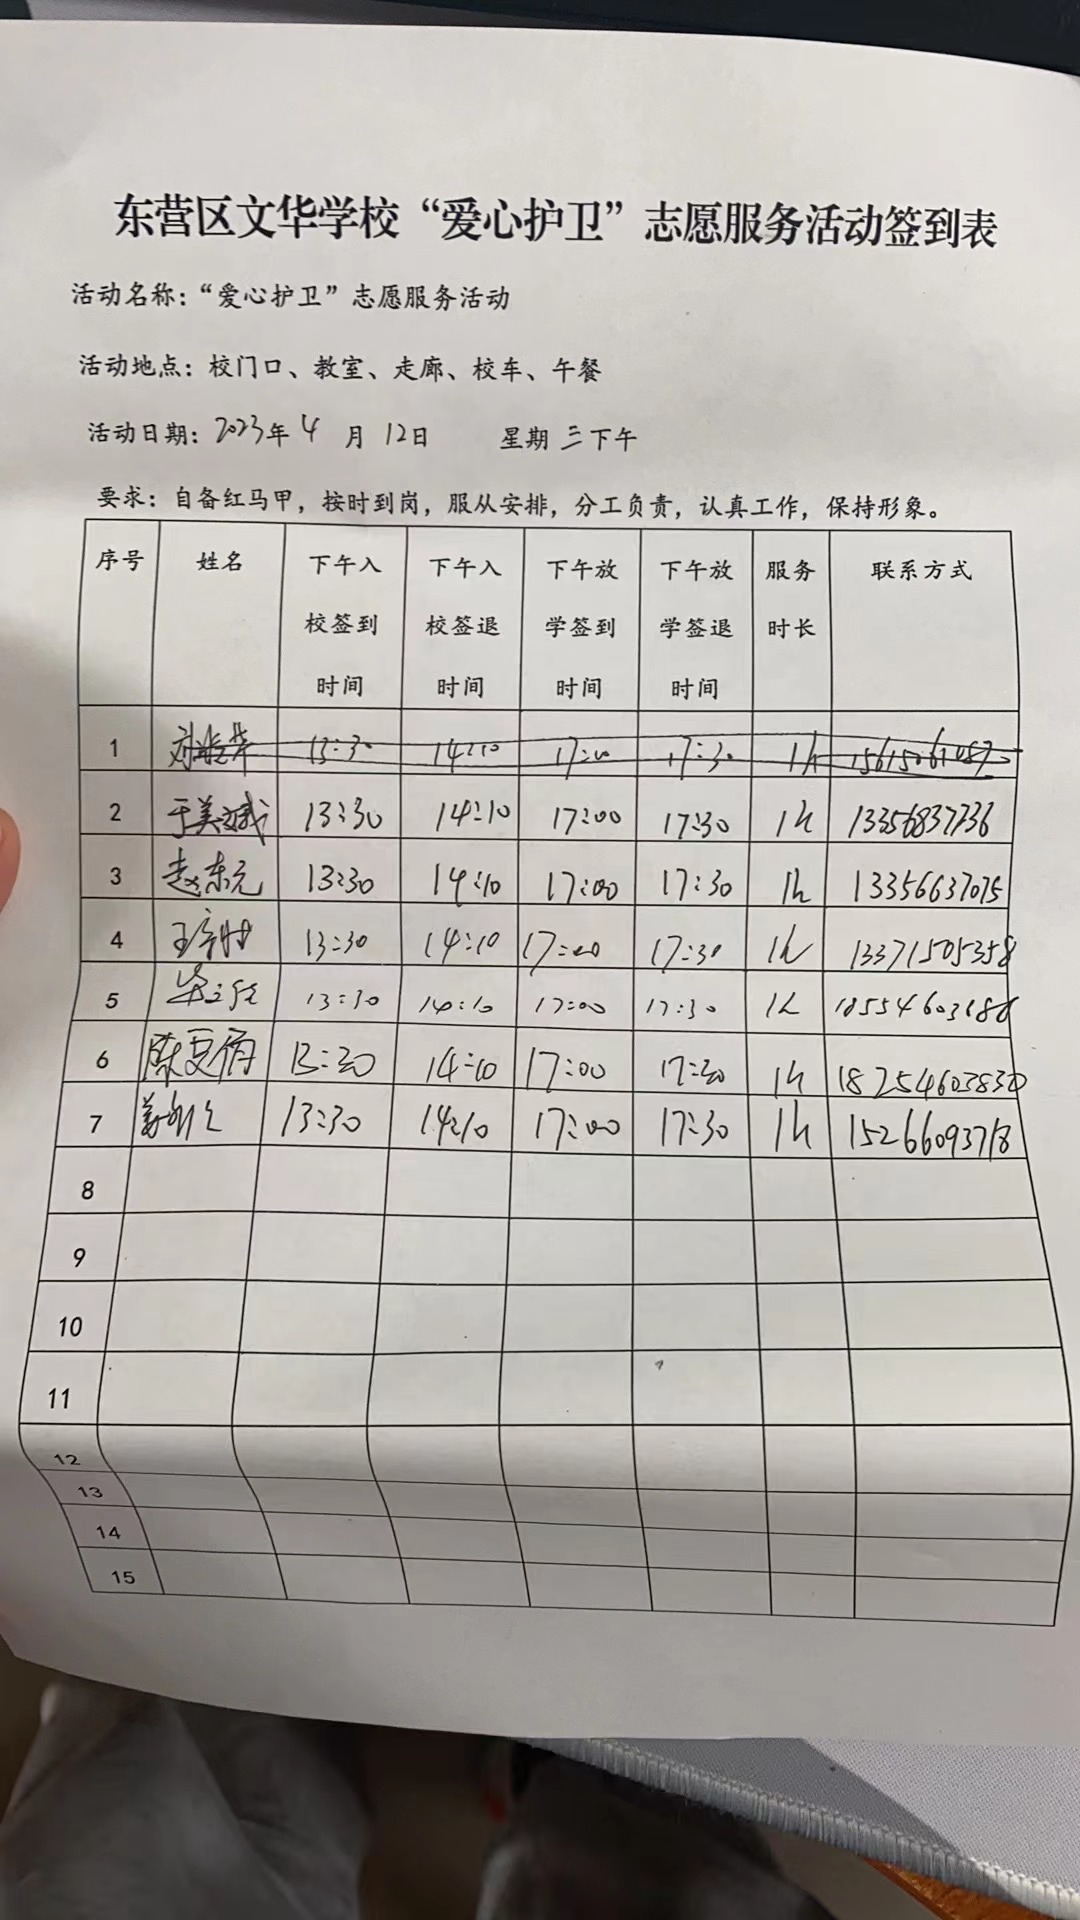 东营区文华学校“爱心护卫”志愿服务活动签到表
活动名称：“爱心护卫”志愿服务活动
活动地点：校门口、教室、走廊、校车、午餐
活动日期：2023年 4 月 12日 星期 三下午
要求：自备红马甲，按时到岗，服从安排，分工负责，认真工作，保持形象。
序号 姓名 下午入校签到时间 下午入校签退时间 下午放学签到时间 下午放学签退时间 服务时长 联系方式
1 13:30 14:10 17:00 17:30 1h
2 于美斌 13:30 14:10 17:00 17:30 1h 13356837736
3 赵东元 13:30 14:10 17:00 17:30 1h 13356637075
4 13:30 14:10 17:00 17:30 1h 13371505358
5 13:30 14:10 17:00 17:30 1h 18554603688
6 13:30 14:10 17:00 17:30 1h 18254603830
7 13:30 14:10 17:00 17:30 1h 15266093718
8
9
10
11
12
13
14
15